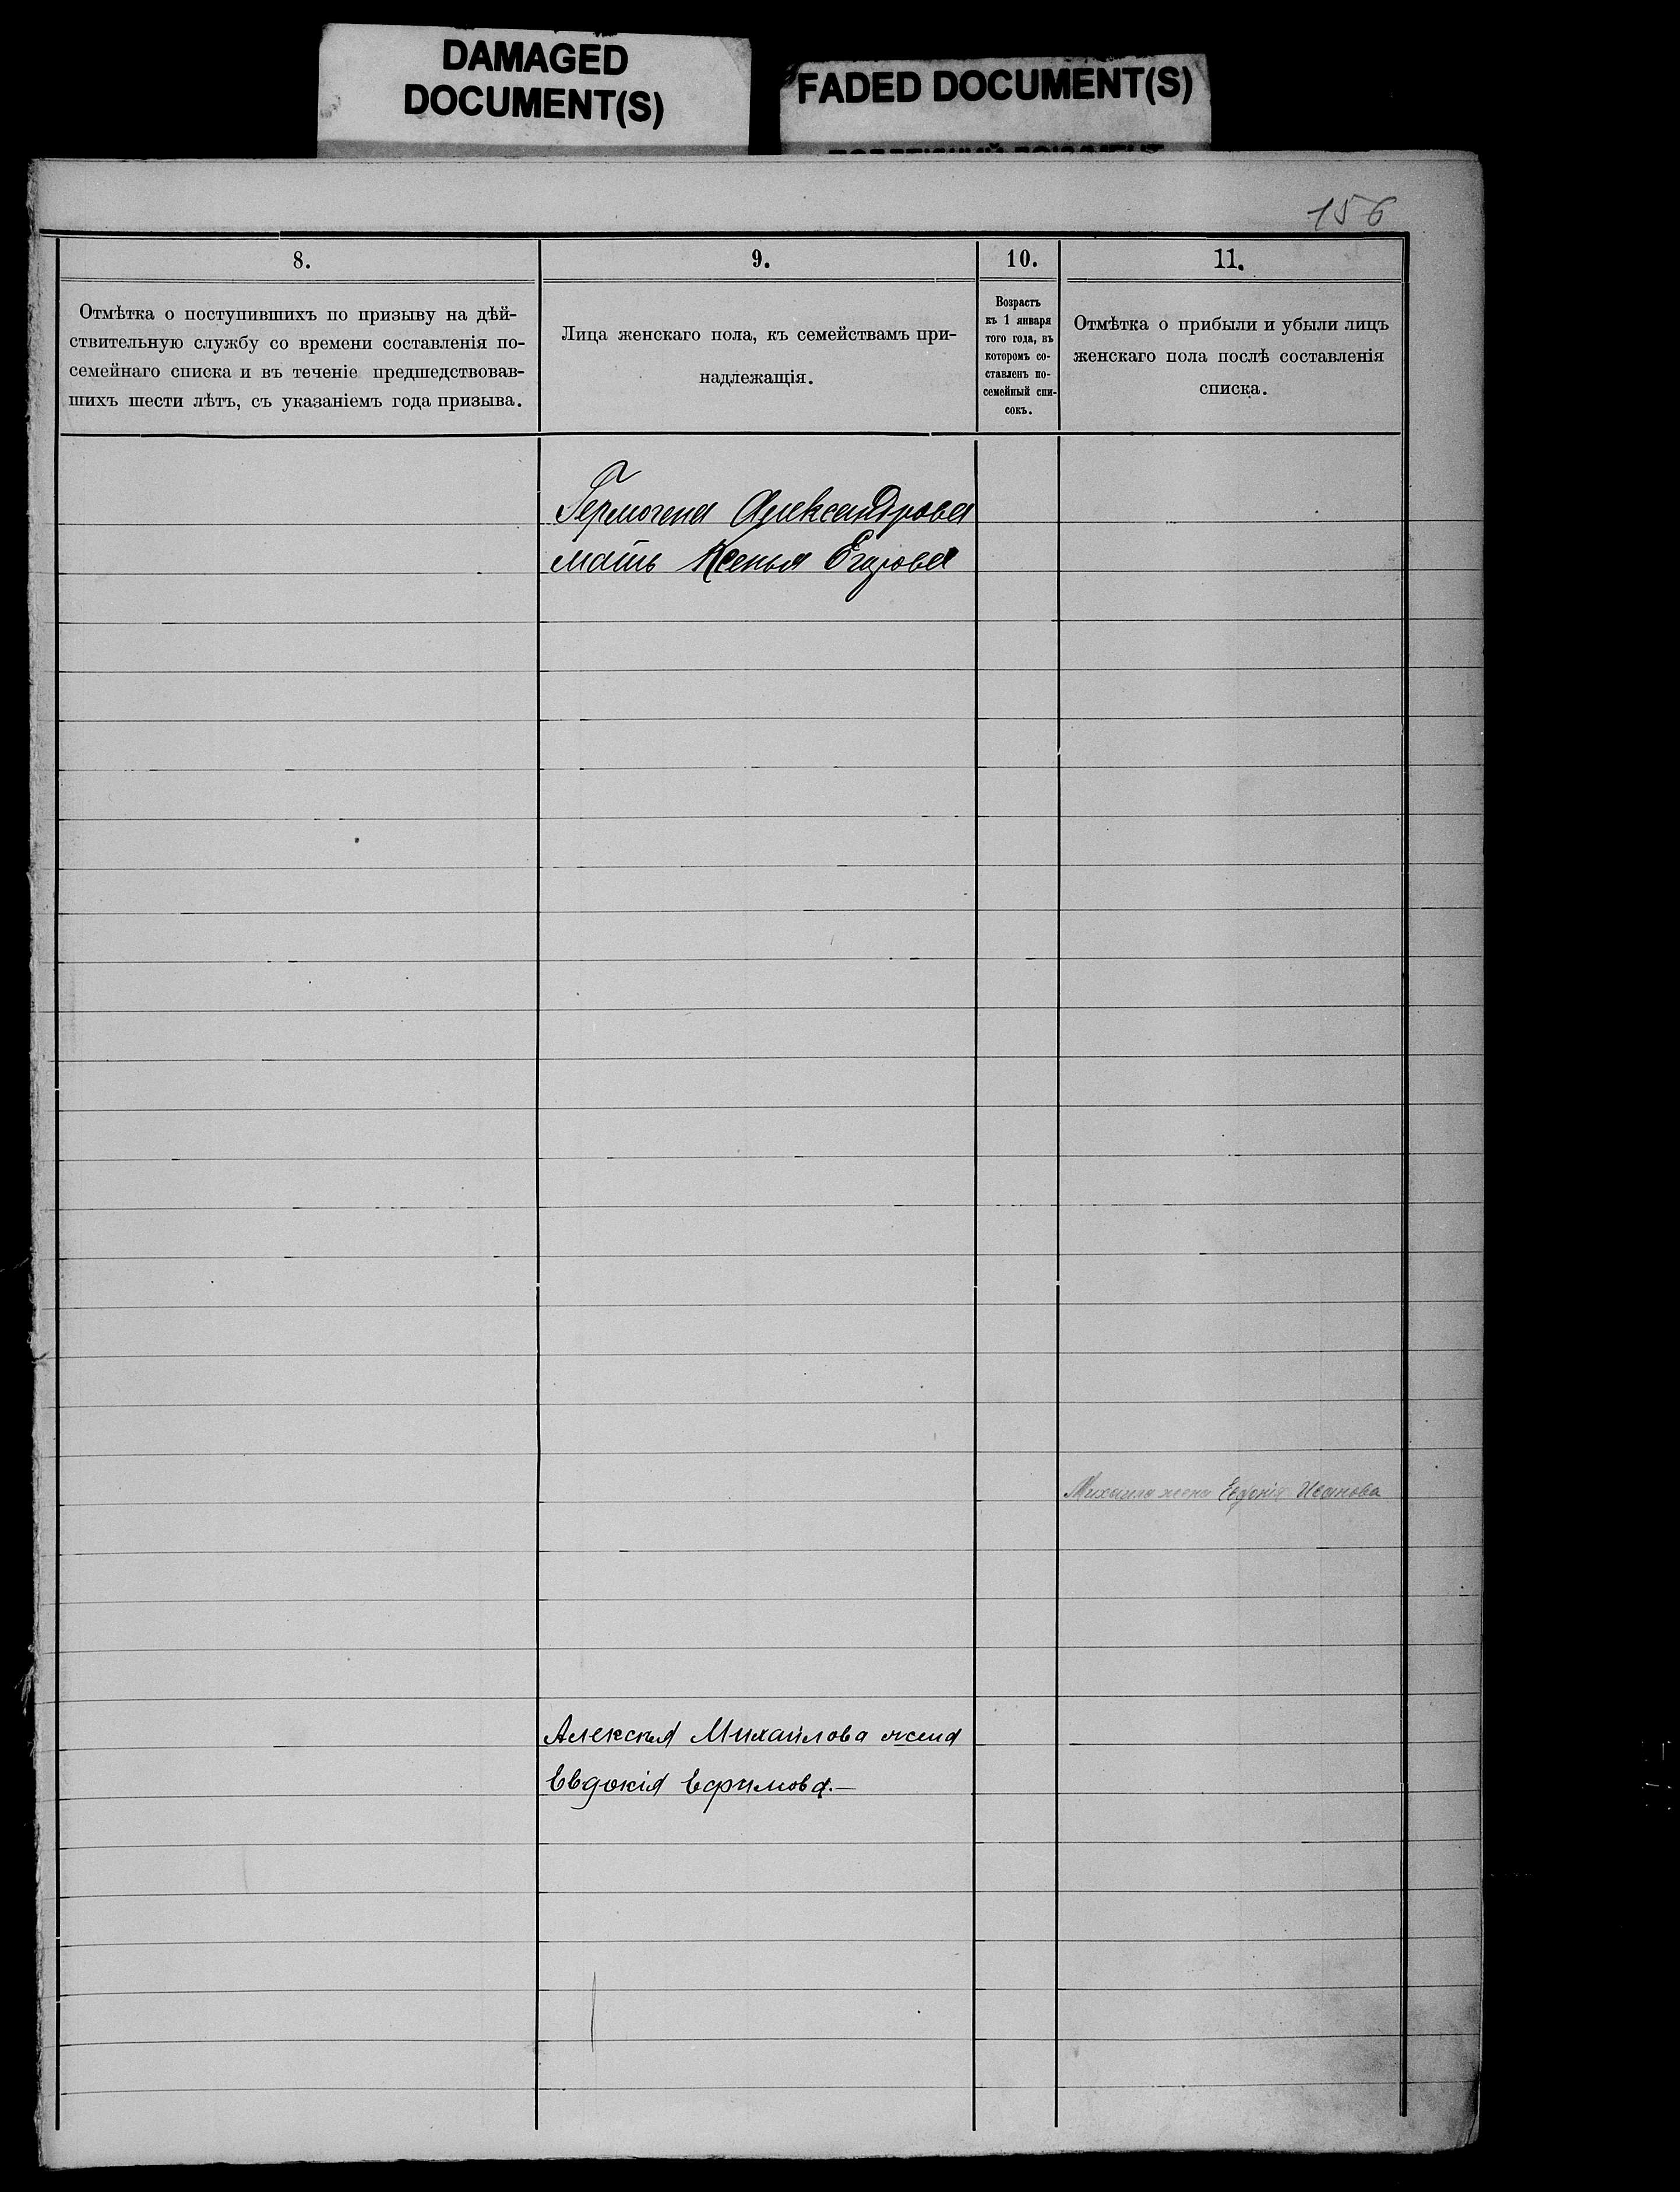 DAMAGED
DOCUMENT(S)
FADED DOCUMENT(S)
156
8.
9.
10.
11.
Отмѣтка о поступившихъ по призыву на дѣй-
ствительную службу со времени составленія по-
семейнаго списка и въ теченіе предшедствовав-
шихъ шести лѣтъ, съ указаніемъ года призыва.
Лица женскаго пола, къ семействамъ при-
надлежащія.
Возрастъ
къ 1 января
того года, въ
которомъ со-
ставленъ по-
семейный спи-
сокъ.
Отмѣтка о прибыли и убыли лицъ
женскаго пола послѣ составленія
списка.
Гермогена Александрова
мать Ксенья Егорова
Михаила жена Евдокія Иванова
Алексѣя Михайлова жена
Евдокія Ефимова.—